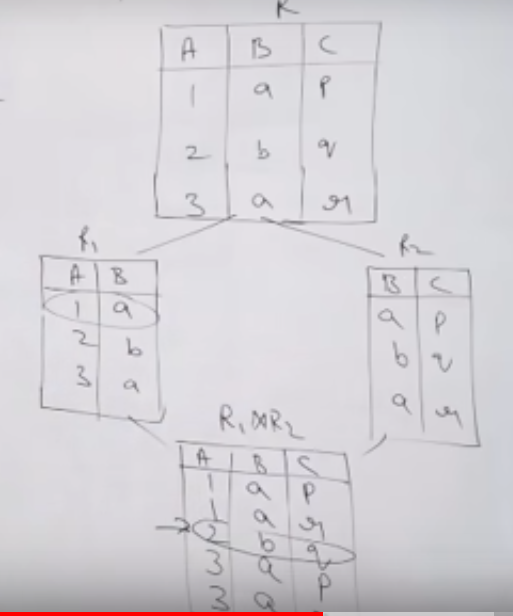 R
A B C
1 a p
2 b q
3 a r
R1
A B
1 a
2 b
3 a
R2
B C
a p
b q
a r
R1⋈R2
A B C
1 a p
1 a r
2 b q
3 a p
3 a